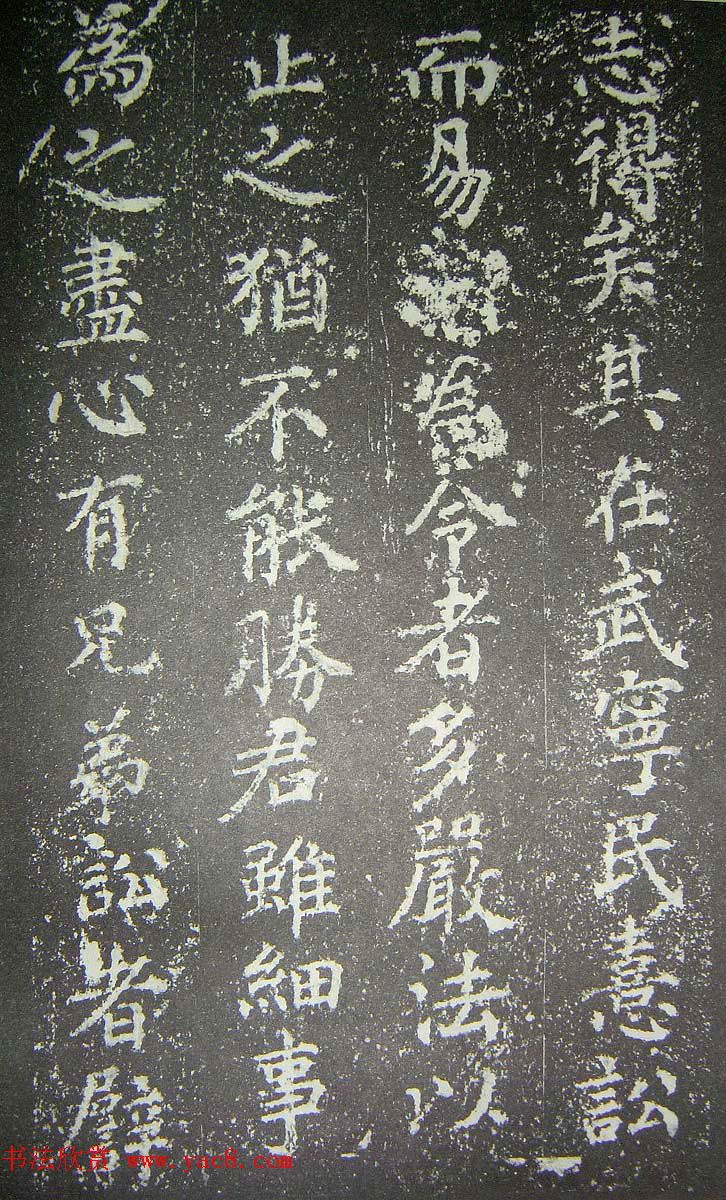 志得矣其在武寧民憙訟
而易令者多嚴法以
止之猶不能勝君雖細事
為之盡心有兄弟訟者辟
书法欣赏 www.yac8.com